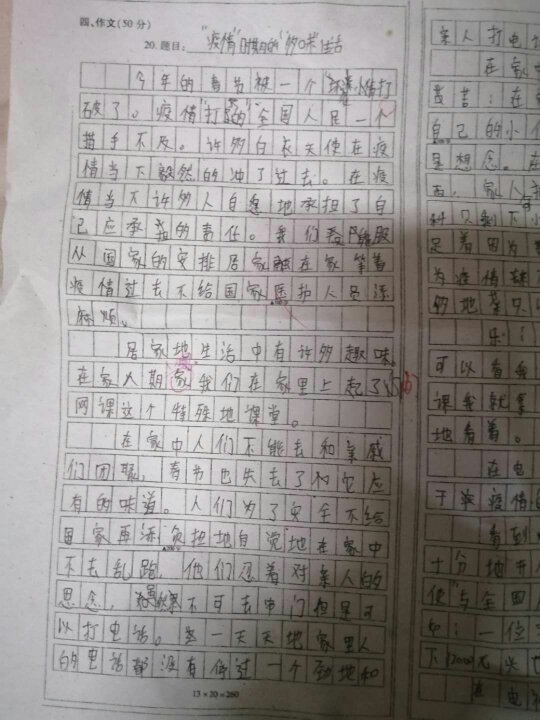 四、作文(50分)
20. 题目: "疫情"时期的"多味"生活
今年的春节被一个"坏小情打
破了。疫情"打的"全国人民一个
措手不及。许多白衣天使在疫
情当下毅然的冲了过去。在疫
情当下许多人自愿地承担了自
己应承担的责任。我们看能服
从国家的安排居家在家等着
疫情过去不给国家医护人员添
麻烦。
居家地生活中有许多趣味。
在家人期家我们在家里上起了
网课这个特殊地课堂。
在家中人们不能去和亲戚
们团聚,春节也失去了和它应
有的味道。人们为了安全不给
国家再添负担地自觉地在家中
不去乱跑,他们忍着对亲人的
思念,虽然不可去串门但是可
以打电话。这一天天地家里人
的电话都没有停过一个劲地和
13×20=260
亲人打电
在家中
黄芪:在
自己的小
里想念。在
家人
科只剩下小
足着因为
为疫情
的地菜只
乐:
可以看我
课我就算
地看着。
在电
于疫情
看到
十分地开
使"与全国
中:一位
下2000元
在电